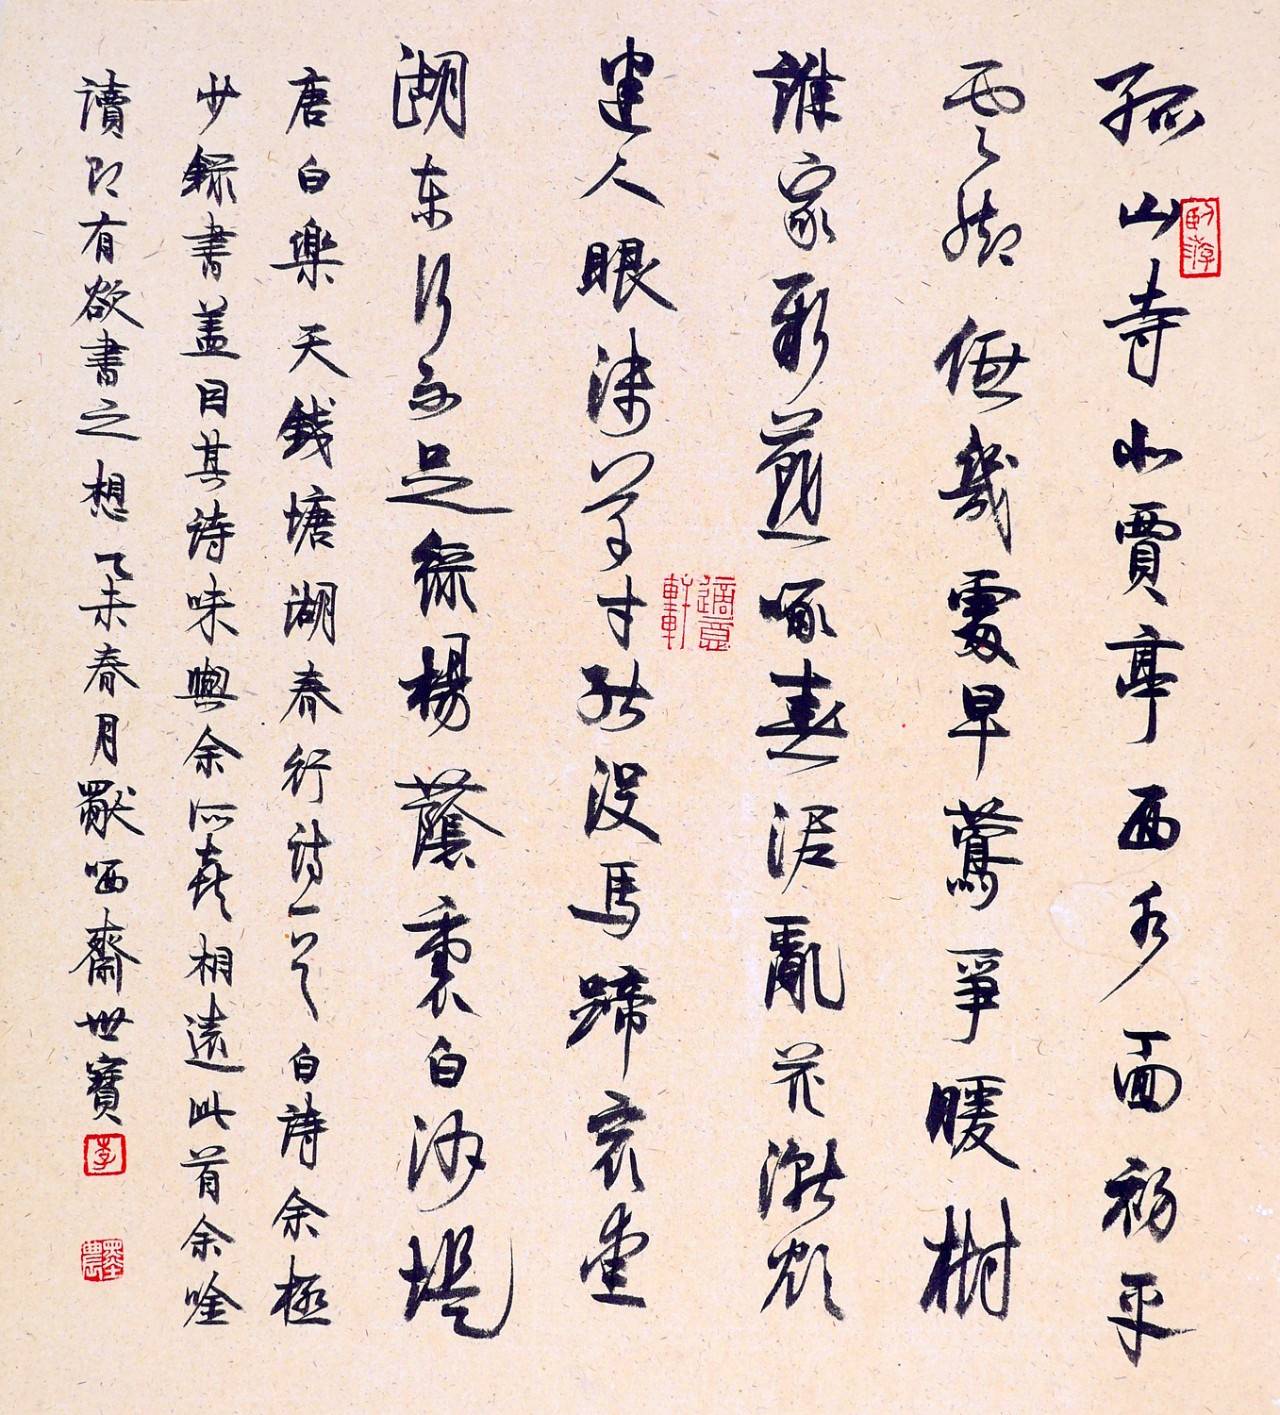 孤山寺北賈亭西水面初平
雲腳低幾處早鶯爭暖樹
誰家新燕啄春泥亂花漸欲
迷人眼淺草才能沒馬蹄最愛
湖東行不足綠楊蔭裏白沙堤
唐白樂天錢塘湖春行詩一首白詩余極
少錄書盖因其詩味與余所喜相遠此首余唫
讀即有欲書之想乙未春月哂齋世寶
卧游
適意軒
李
墨農